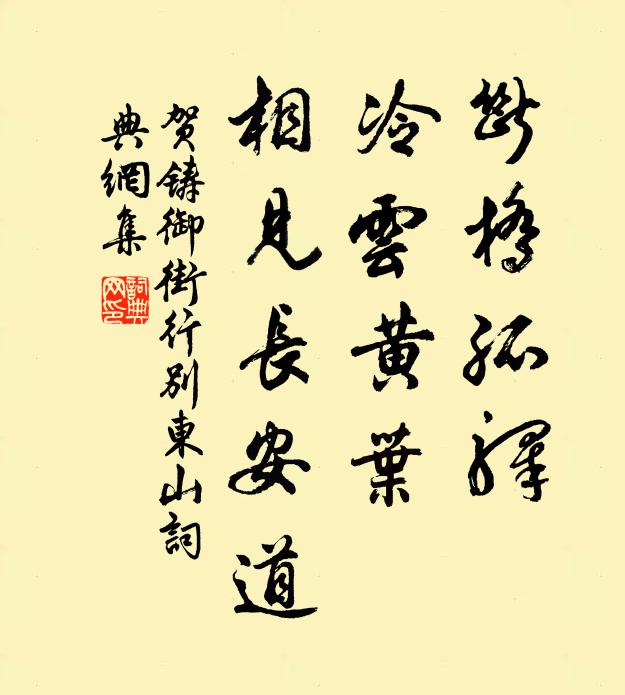 斷橋孤驛
冷雲黃葉
相見長安道
贺鑄御街行别東山詞
典網集
詞典網印